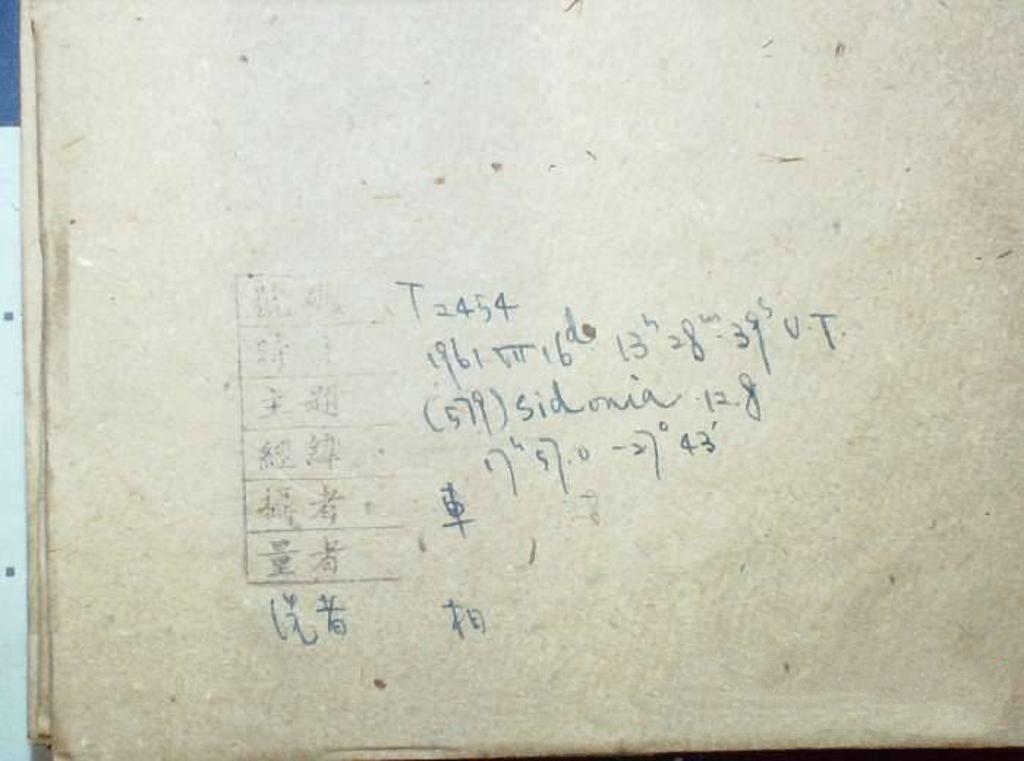 號碼 T 2454
時 1961 VII 16d 13h 28m 39s U.T.
主題 (579) Sidonia 12.8
經緯 17h 57.0 -27° 43′
攝者 車
量者
洗者 相